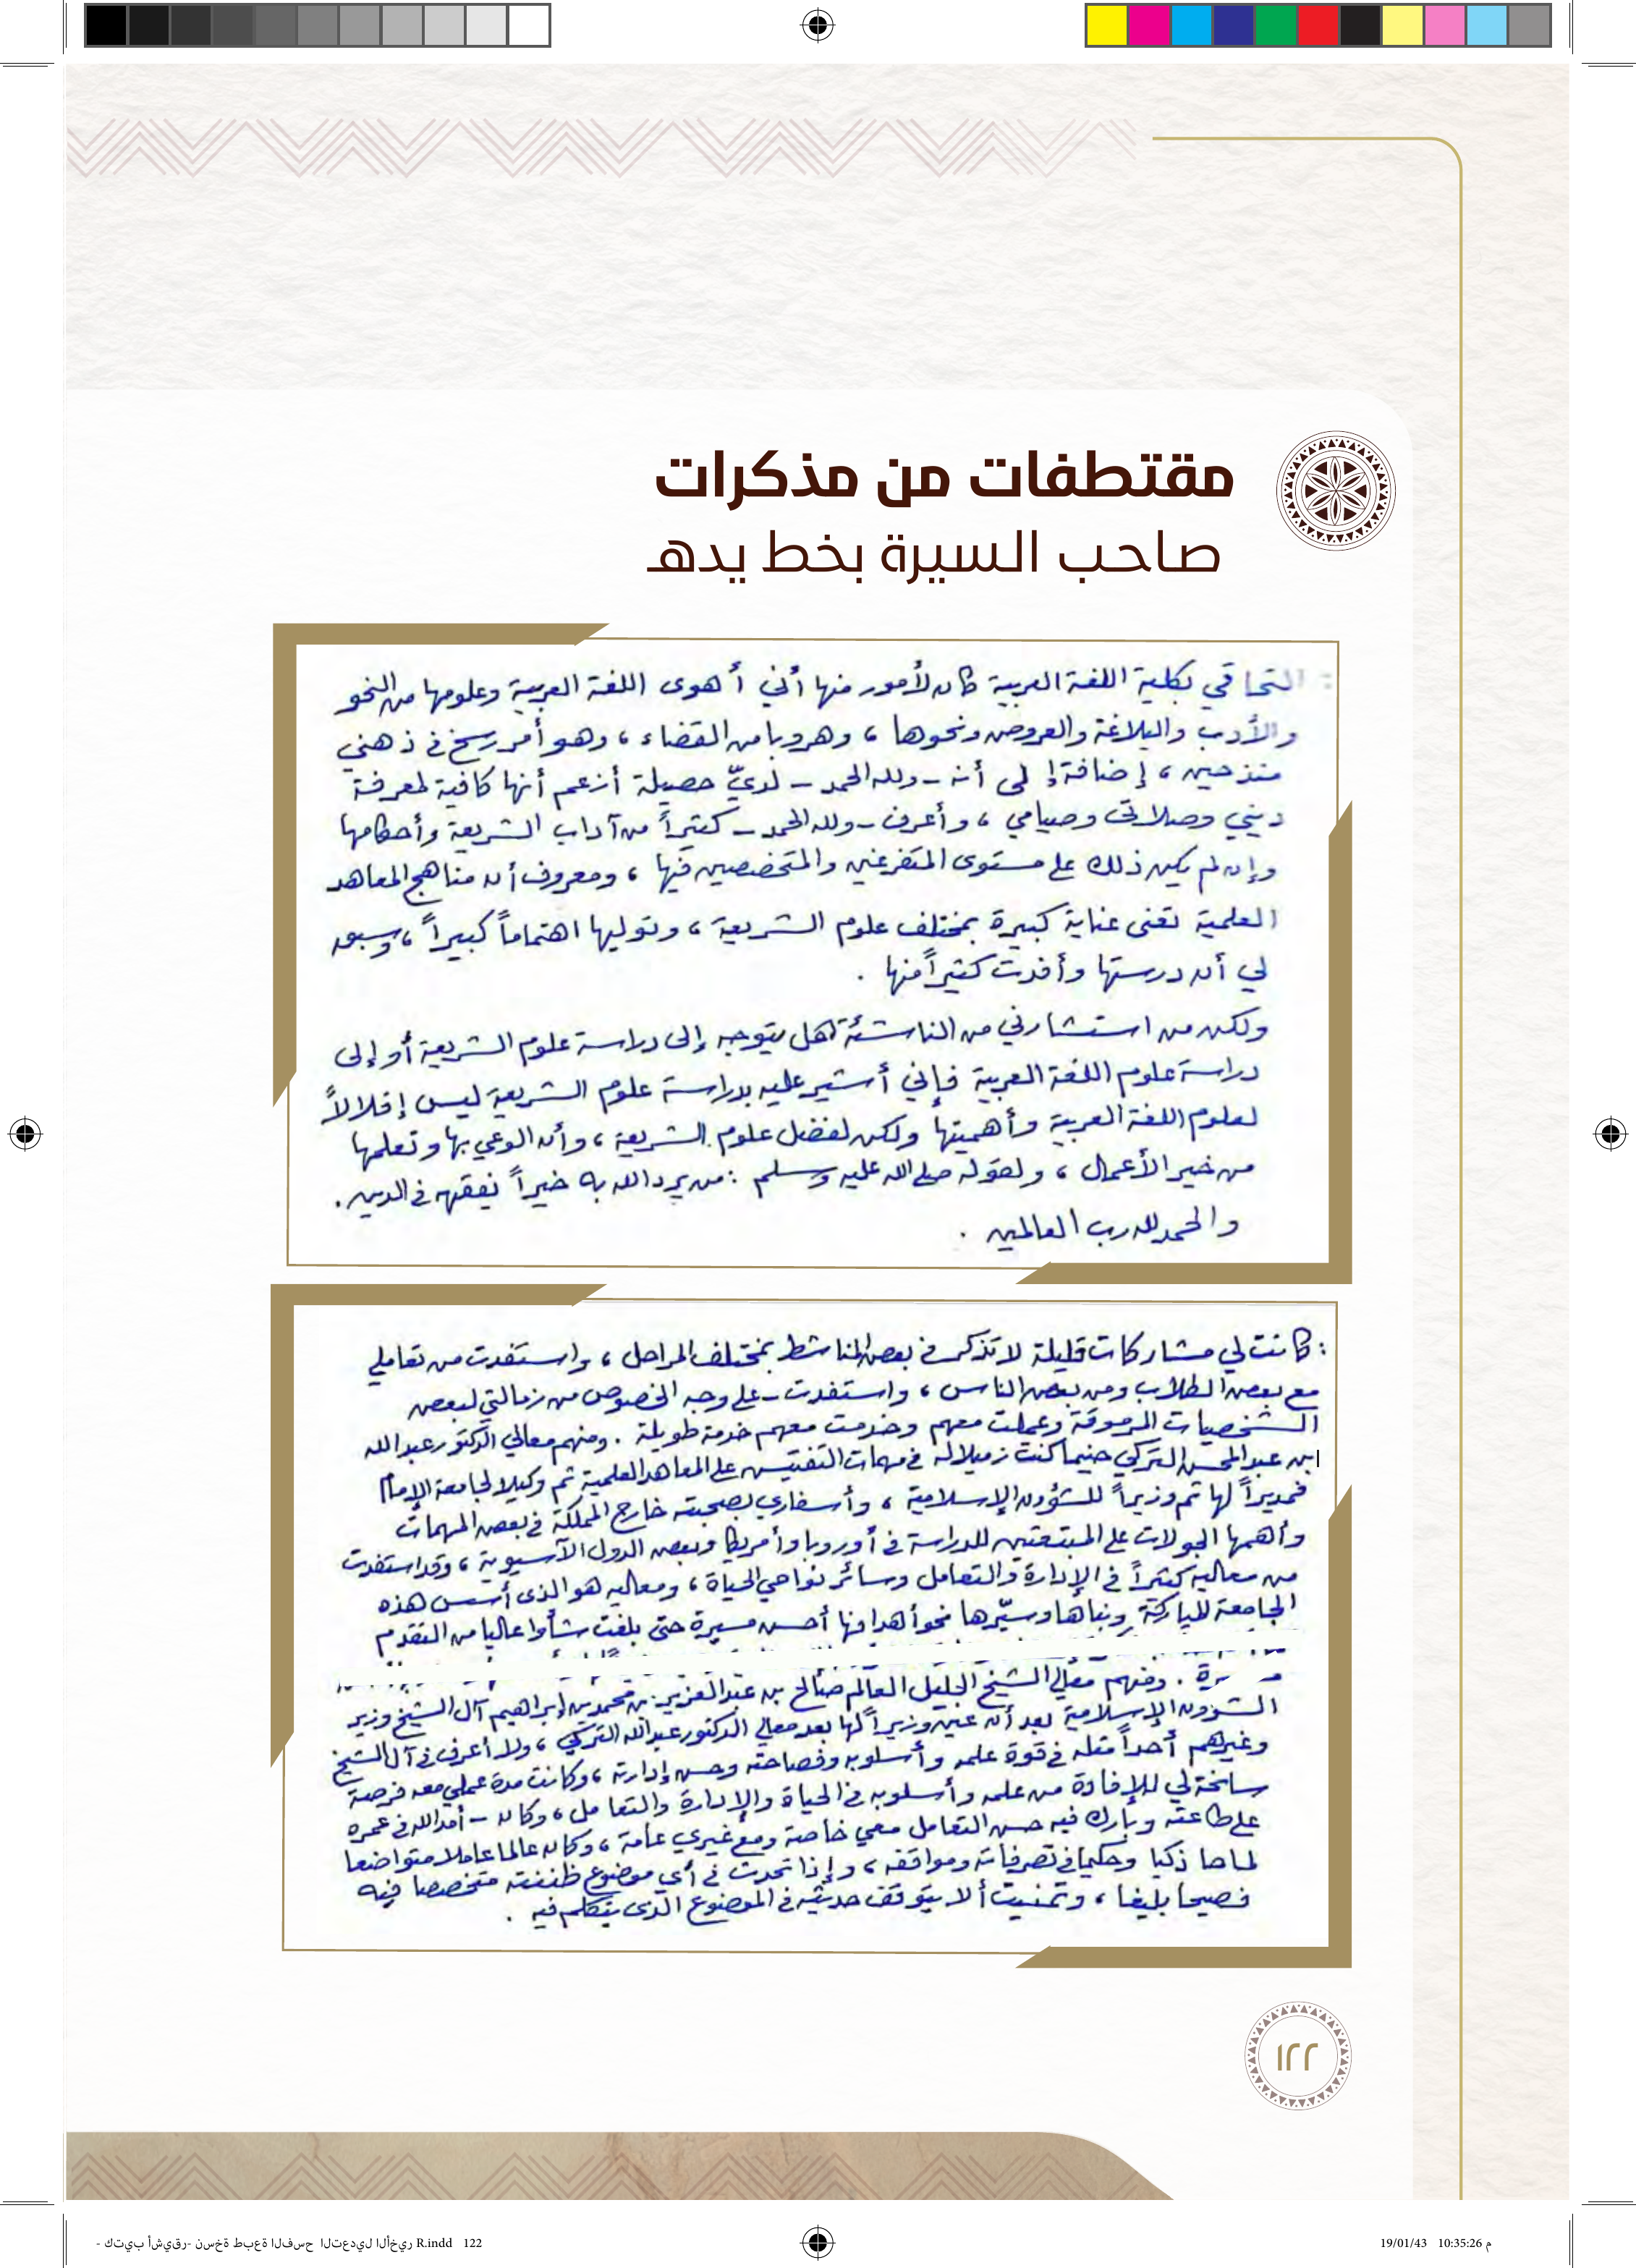 مقتطفات من مذكرات
صاحب السيرة بخط يده
: التحاقي بكلية اللغة العربية كان لأمور منها أني أهوى اللغة العربية وعلومها من النحو
والأدب والبلاغة والعروض ونحوها ، وهروبا من القضاء ، وهو أمر رسخ في ذهني
منذ حين ، إضافة إلى أنه - ولله الحمد - لديّ حصيلة أزعم أنها كافية لمعرفة
ديني وصلاتي وصيامي ، وأعرف - ولله الحمد - كثيراً من آداب الشريعة وأحكامها
وإن لم يكن ذلك على مستوى المتفرغين والمتخصصين فيها ، ومعروف أن مناهج المعاهد
العلمية تعنى عناية كبيرة بمختلف علوم الشريعة ، وتوليها اهتماماً كبيراً ، وسبق
لي أن درستها وأفدت كثيراً منها .
ولكن من استشارني من الناشئة هل يتوجه إلى دراسة علوم الشريعة أو إلى
دراسة علوم اللغة العربية فإني أشير عليه بدراسة علوم الشريعة ليس إقلالاً
لعلوم اللغة العربية وأهميتها ولكن لفضل علوم الشريعة ، وأن الوعي بها وتعلمها
من خير الأعمال ، ولقوله صلى الله عليه وسلم : من يرد الله به خيراً يفقهه في الدين .
والحمد لله رب العالمين .
: كانت لي مشاركات قليلة لا تذكر في بعض المناشط بمختلف المراحل ، واستفدت من تعاملي
مع بعض الطلاب ومن بعض الناس ، واستفدت - على وجه الخصوص من زمالتي لبعض
الشخصيات المرموقة وعملت معهم وخدمت معهم خدمة طويلة . ومنهم معالي الدكتور عبد الله
ابن عبد المحسن التركي حينما كنت زميلا له في مهمات التفتيش على المعاهد العلمية ثم وكيلا لجامعة الإمام
فمديراً لها ثم وزيراً للشؤون الإسلامية ، وأسفاري بصحبته خارج المملكة في بعض المهمات
وأهمها الجولات على المبتعثين للدراسة في أوروبا وأمريكا وبعض الدول الآسيوية ، وقد استفدت
من معاليه كثيراً في الإدارة والتعامل وسائر نواحي الحياة ، ومعاليه هو الذي أسس هذه
الجامعة المباركة وبناها وسيّرها نحو أهدافها أحسن مسيرة حتى بلغت شأوا عاليا من التقدم
ومنهم معالي الشيخ الجليل العالم صالح بن عبد العزيز بن محمد بن إبراهيم آل الشيخ وزير
الشؤون الإسلامية بعد أن عين وزيراً لها بعد معالي الدكتور عبد الله التركي ، ولا أعرف في آل الشيخ
وغيرهم أحداً مثله في قوة علمه وأسلوبه وفصاحته وحسن إدارته ، وكانت مدة عملي معه فرصة
سانحة لي للإفادة من علمه وأسلوبه في الحياة والإدارة والتعامل ، وكان - أمد الله في عمره
على طاعته وبارك فيه حسن التعامل معي خاصة ومع غيري عامة ، وكان عالما عاملا متواضعا
لماحا ذكيا وحكيما في تصرفاته ومواقفه ، وإذا تحدث في أي موضوع ظننته متخصصا فيه
فصيحا بليغا ، وتمنيت ألا يتوقف حديثه في الموضوع الذي يتكلم فيه .
١٢٢
كتيب أشيقر- نسخة طبعة الفسح التعديل الأخير - R.indd 122
19/01/43 10:35:26 م